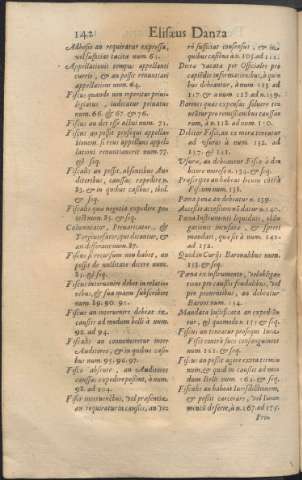 142 Eliseus Danza
Adhesio an requiratur expressa,
vel sufficiat tacita num. 63.
Appellationis tempus appellanti
currit, & an possit renuntiari
appellationi num. 64.
Fiscus quando non reperitur privi-
legiatus, iudicatur privatus
num. 66. & 67. & 76.
Fiscus an det esse actui num. 71.
Fiscus an possit prosequi appellan-
tionem, si reus appellans appel-
lationi renuntiaverit num. 77.
& seq.
Fiscalis an possit, absentibus Au-
ditoribus, causas expedire n.
83. & in quibus casibus, ibid.
&
Fiscalis quæ negotia expedire po-
test num. 85. & seq.
Calumniator, Prevaricator, &
Tergiversator, qui dicantur, &
an differant num. 87.
Fiscus si recursum non habet, an
possit de nullitate dicere num.
& seq.
Fiscus intervenire debet in relatio-
nibus, & sua manu subscribere
num. 89. 90. 91.
Fiscus an intervenire debeat in
causis ad modum belli à num.
92. ad 94.
Fiscalis an connumeretur inter
Auditores, & in quibus casi-
bus num. 95. 96. 97.
Fisco absente, an Auditores
causas expedire possint, à num.
98. ad 104.
Fisci interventus, vel præsentia
an requiratur in causis, an vero
sufficiat consensus, & in
quibus casibus à n. 105. ad 112.
Dicta vacata per Officiales pro
capiendis informationibus, à qui-
bus debeantur, à num. 113. ad
117. & à num. 118. ad n. 119.
Barones quas expensas solvere te-
neantur pro remissionibus causa-
rum, à n. 118. ad num. 120.
Debitor Fisci, an ex mora teneatur
ad usuras à num. 132. ad
& 121.
Usuræ, an debeantur Fisco à
bitore num. 132. & seq.
Privilegia an habeat bona citra
Fisci num. 138.
Pœna an debeatur n. 139.
n. 140.
Pœna Instrumenti liquidati, obli-
gationis incusatæ, & spreti
mandati, quæ sit à num. 141.
ad 152.
Quid in Curijs Baronalibus num.
153. & seq.
Pœna ex instrumentis, vel obliga-
tionis pro causis feudalibus, vel
pro proventibus, an debeatur
Baroni num. 154.
Mandata justificata an expediun-
tur, & à num. 155. & seq.
Fiscus an teneatur prosequi
Fisci contra suos consanguineos
num. 161. & seq.
Fiscus an possit agere extra
num. & quid in causis ad mo-
dum belli num. 164. & seq.
Fiscalis an habeat Iurisdictionem,
& possit carcerare, vel licen-
deserre, à n. 167. ad 175.
Pri-